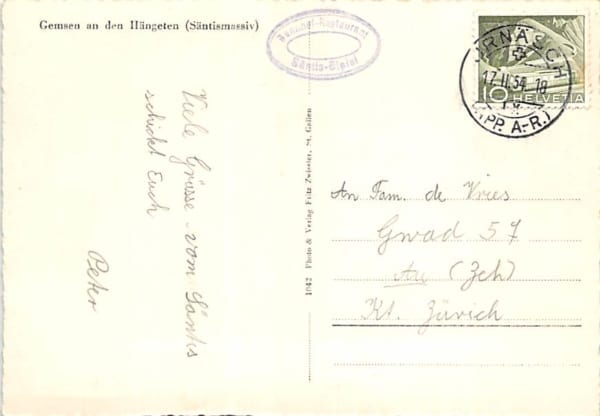 Gemsen an den Hängeten (Säntismassiv)
Säntis-Gipfel
URNÄSCH
17.II.54.18
(APP. A.-R.)
10 HELVETIA
Viele Grüsse vom Säntis
schickt Euch
Peter
1042 Photo & Verlag Fritz Zwicker, St. Gallen
An Fam. de Vries
Gwad 57
Au (Zch)
Kt. Zürich